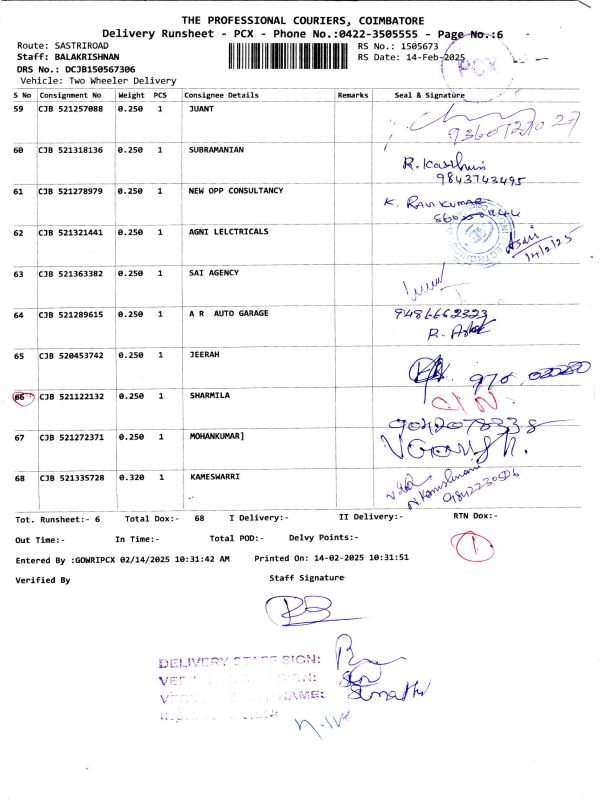 THE PROFESSIONAL COURIERS, COIMBATORE
Delivery Runsheet - PCX - Phone No.:0422-3505555 - Page No.:6
Route: SASTRIROAD RS No.: 1505673
Staff: BALAKRISHNAN RS Date: 14-Feb-2025
DRS No.: DCJB150567306
Vehicle: Two Wheeler Delivery
PCX
S No Consignment No Weight PCS Consignee Details Remarks Seal & Signature
59 CJB 521257088 0.250 1 JUANT
60 CJB 521318136 0.250 1 SUBRAMANIAN
9843743495
61 CJB 521278979 0.250 1 NEW OPP CONSULTANCY
K. RAVIKUMAR
62 CJB 521321441 0.250 1 AGNI LELCTRICALS
14/2/25
63 CJB 521363382 0.250 1 SAI AGENCY
64 CJB 521289615 0.250 1 A R AUTO GARAGE
9486662323
65 CJB 520453742 0.250 1 JEERAH
66 CJB 521122132 0.250 1 SHARMILA
67 CJB 521272371 0.250 1 MOHANKUMAR]
68 CJB 521335728 0.320 1 KAMESWARRI
Tot. Runsheet:- 6 Total Dox:- 68 I Delivery:- II Delivery:- RTN Dox:-
Out Time:- In Time:- Total POD:- Delvy Points:-
1
Entered By :GOWRIPCX 02/14/2025 10:31:42 AM Printed On: 14-02-2025 10:31:51
Verified By Staff Signature
DELIVERY STAFF SIGN: